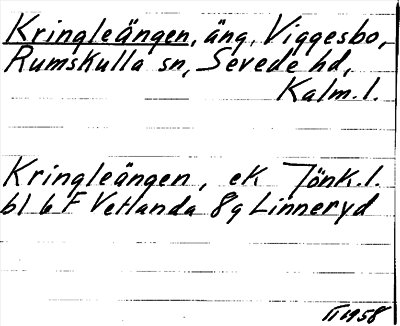 Kringleängen, äng, Viggesbo,
Rumskulla sn, Sevede hd,
Kalm. l.
Kringleängen, ek Jönk. l.
bl 6 F Vetlanda 8g Linneryd
II 1958